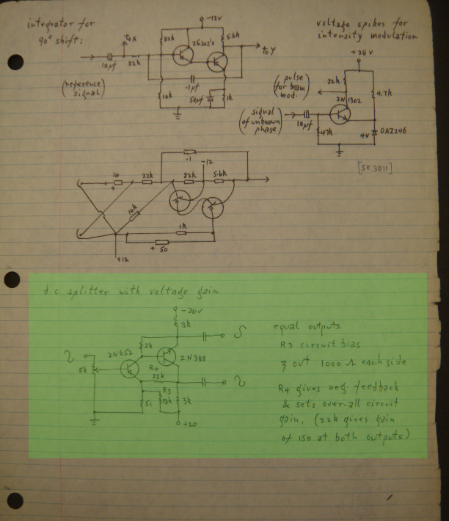 integrator for
90° shift:
to X
-12v
22k
5.6k
2G301's
to Y
10µf
22k
.1µf
(reference
signal)
10k
50µf
1k
voltage spikes for
intensity modulation
+24v
(pulse
for beam
mod.)
22k
4.7k
2N1302
(signal
of unknown
phase)
10µf
47k
4v
OAZ246
[SE.3011]
.1
-12
10
+
22k
22k
5.6k
10k
1k
+ 50
+12
d.c. splitter with voltage gain
-20v
3k
2k
2N388
5k
R4
22k
R3
10k
51
3k
+20
equal outputs
R3 circuit bias
Z out 1000 Ω each side
R4 gives neg. feedback
& sets overall circuit
gain, (22k gives gain
of 150 at both outputs)